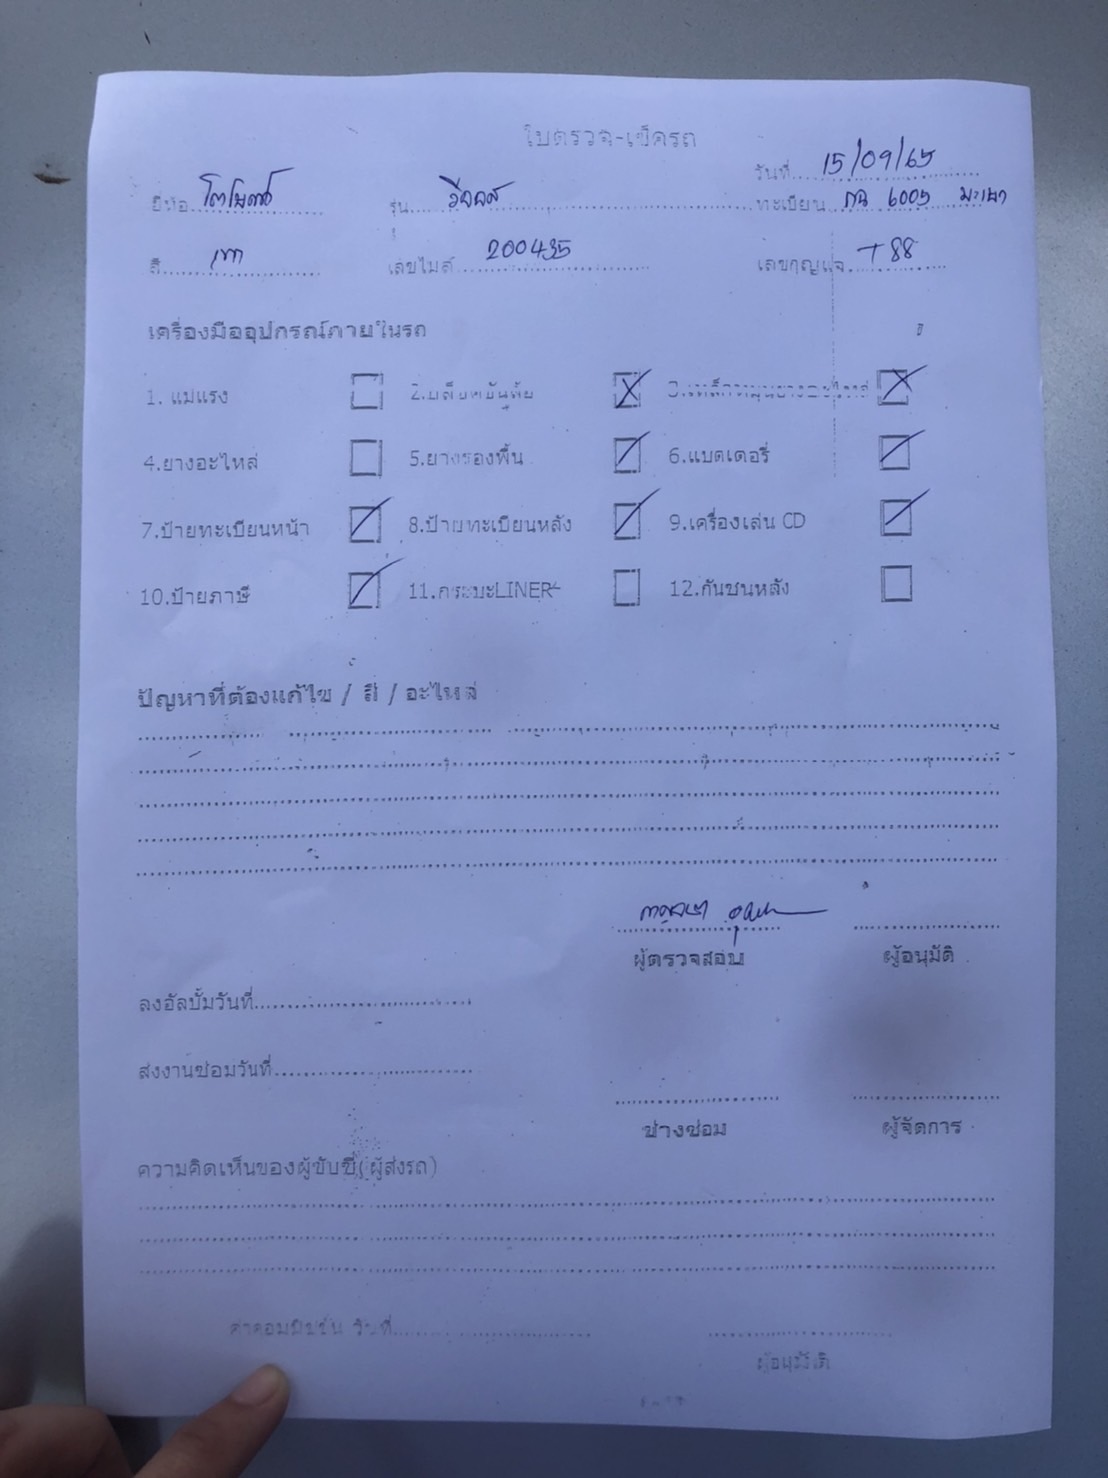 ใบตรวจ-เช็ครถ
วันที่ 15/09/65
ยี่ห้อ โตโยต้า รุ่น วีออส ทะเบียน 6005
สี เทา เลขไมล์ 200435 เลขกุญแจ T88
เครื่องมืออุปกรณ์ภายในรถ
1. แม่แรง 2.บล็อคขันล้อ X 3.เหล็กหมุนยางอะไหล่ X
4.ยางอะไหล่ 5.ยางรองพื้น / 6.แบตเตอรี่ /
7.ป้ายทะเบียนหน้า / 8.ป้ายทะเบียนหลัง / 9.เครื่องเล่น CD /
10.ป้ายภาษี / 11.กระบะLINER 12.กันชนหลัง
ปัญหาที่ต้องแก้ไข / สี / อะไหล่
ผู้ตรวจสอบ ผู้อนุมัติ
ลงอัลบั้มวันที่
ส่งงานซ่อมวันที่
ช่างซ่อม ผู้จัดการ
ความคิดเห็นของผู้ขับขี่(ผู้ส่งรถ)
ค่าคอมมิชชั่น วันที่
ผู้อนุมัติ